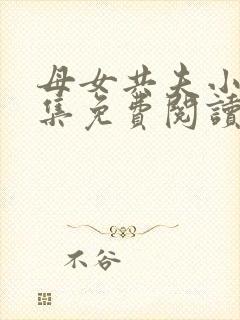 母女共夫小
集免費閱讀
不谷